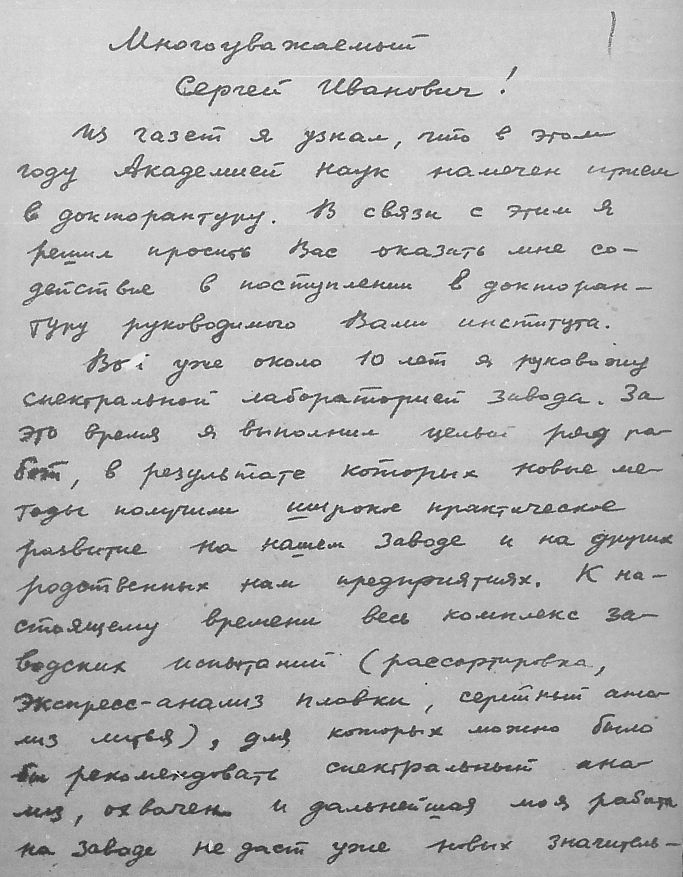 Многоуважаемый
Сергей Иванович!
Из газет я узнал, что в этом
году Академией наук намечен прием
в докторантуру. В связи с этим я
решил просить Вас оказать мне со-
действие в поступлении в докторан-
туру руководимого Вами института.
Вот уже около 10 лет я руковожу
спектральной лабораторией завода. За
это время я выполнил целый ряд ра-
бот, в результате которых новые ме-
тоды получили широкое практическое
развитие на нашем заводе и на других
родственных нам предприятиях. К на-
стоящему времени весь комплекс за-
водских испытаний (рассортировка,
экспресс-анализ плавки, серийный ана-
лиз литья), для которых можно было
бы рекомендовать спектральный ана-
лиз, охвачен и дальнейшая моя работа
на заводе не даст уже новых значитель-